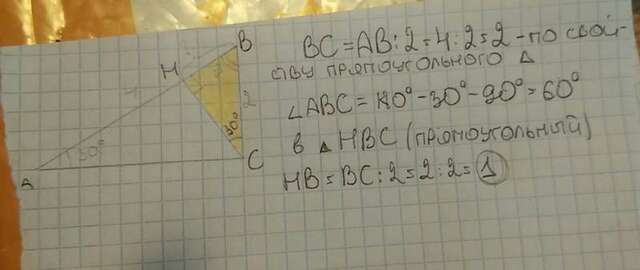 BC=AB:2=4:2=2-по свой-
ству прямоугольного Δ
∠ABC=180°-30°-90°=60°
в Δ HBC (прямоугольный)
HB=BC:2=2:2=1
B
H
2
30°
30°
A
C